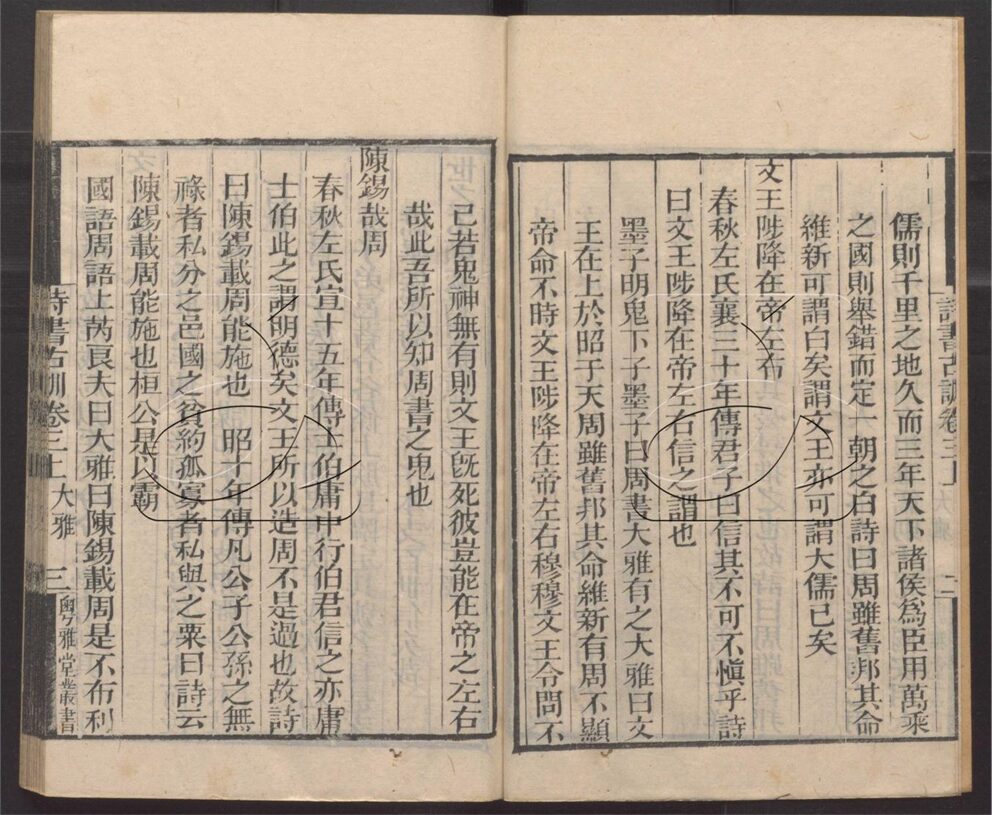 儒則千里之地久而三年天下諸侯爲臣用萬乘
之國則舉錯而定一朝之白詩曰周雖舊邦其命
維新可謂白矣謂文王亦可謂大儒已矣
文王陟降在帝左布
春秋左氏襄三十年傳君子曰信其不可不愼乎詩
曰文王陟降在帝左右信之謂也
墨子明鬼下子墨子曰周書大雅有之大雅曰文
王在上於昭于天周雖舊邦其命維新有周不顯
帝命不時文王陟降在帝左右穆穆文王令問不
詩書古訓卷三上 大雅 二
已若鬼神無有則文王旣死彼豈能在帝之左右
哉此吾所以知周書之鬼也
陳錫哉周
春秋左氏宣十五年傳士伯庸中行伯君信之亦庸
士伯此之謂明德矣文王所以造周不是過也故詩
曰陳錫載周能施也 昭十年傳凡公子公孫之無
祿者私分之邑國之貧約孤寡者私與之粟曰詩云
陳錫載周能施也桓公是以霸
國語周語上芮良夫曰大雅曰陳錫載周是不布利
詩書古訓卷三上 大雅 三 粵雅堂叢書